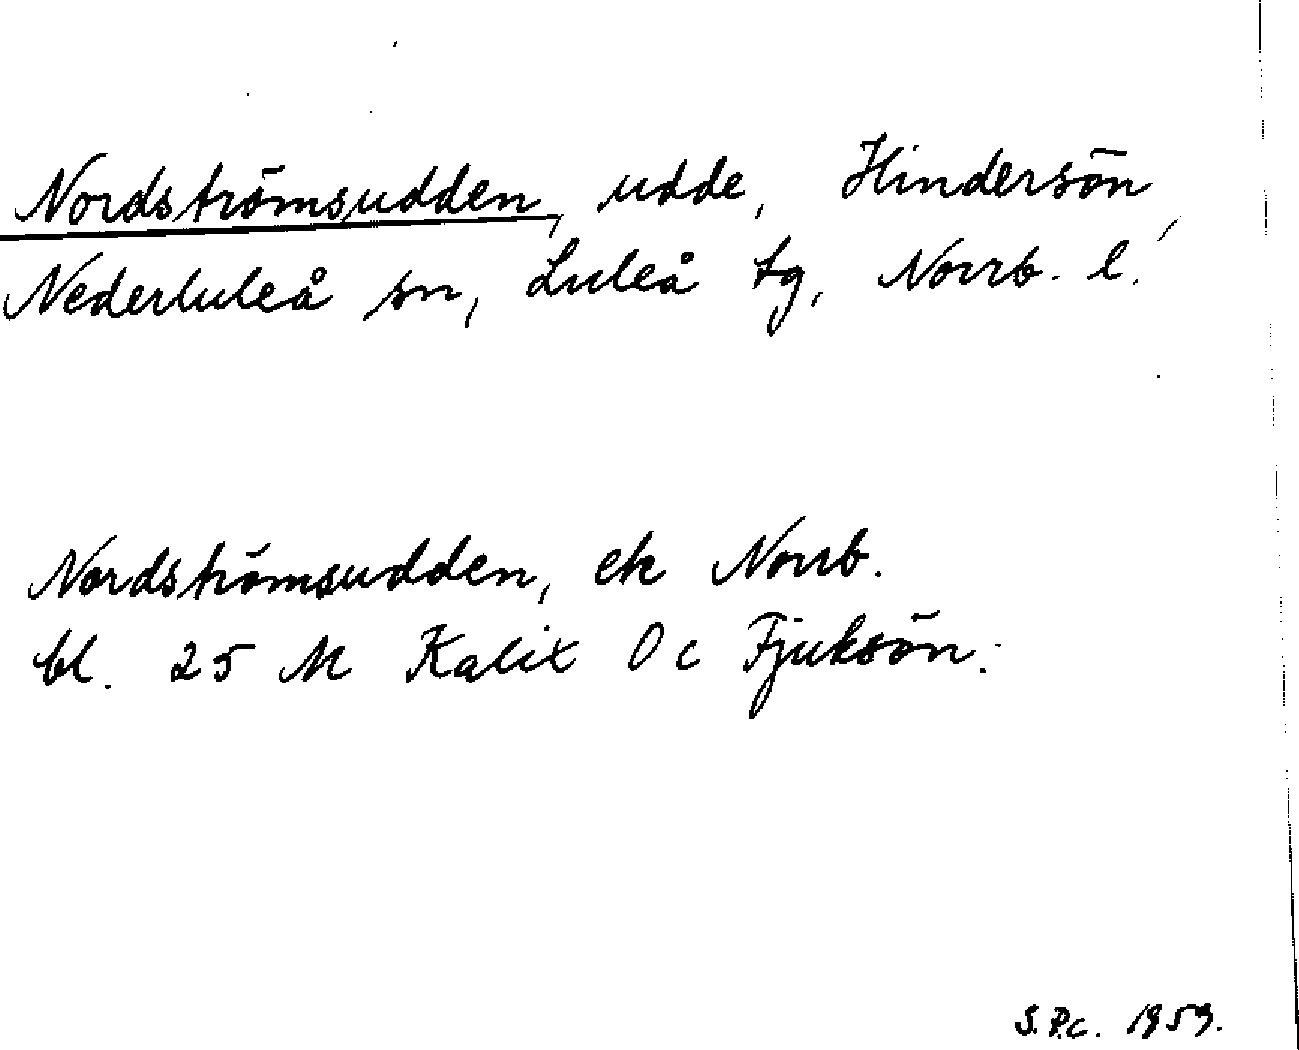 Nordströmsudden, udde, Hindersön,
Nederluleå sn, Luleå tg, Norrb. l.
Nordströmsudden, ek Norrb.
bl. 25 M Kalix 0 c Fjuksön.
S.P.c. 1959.